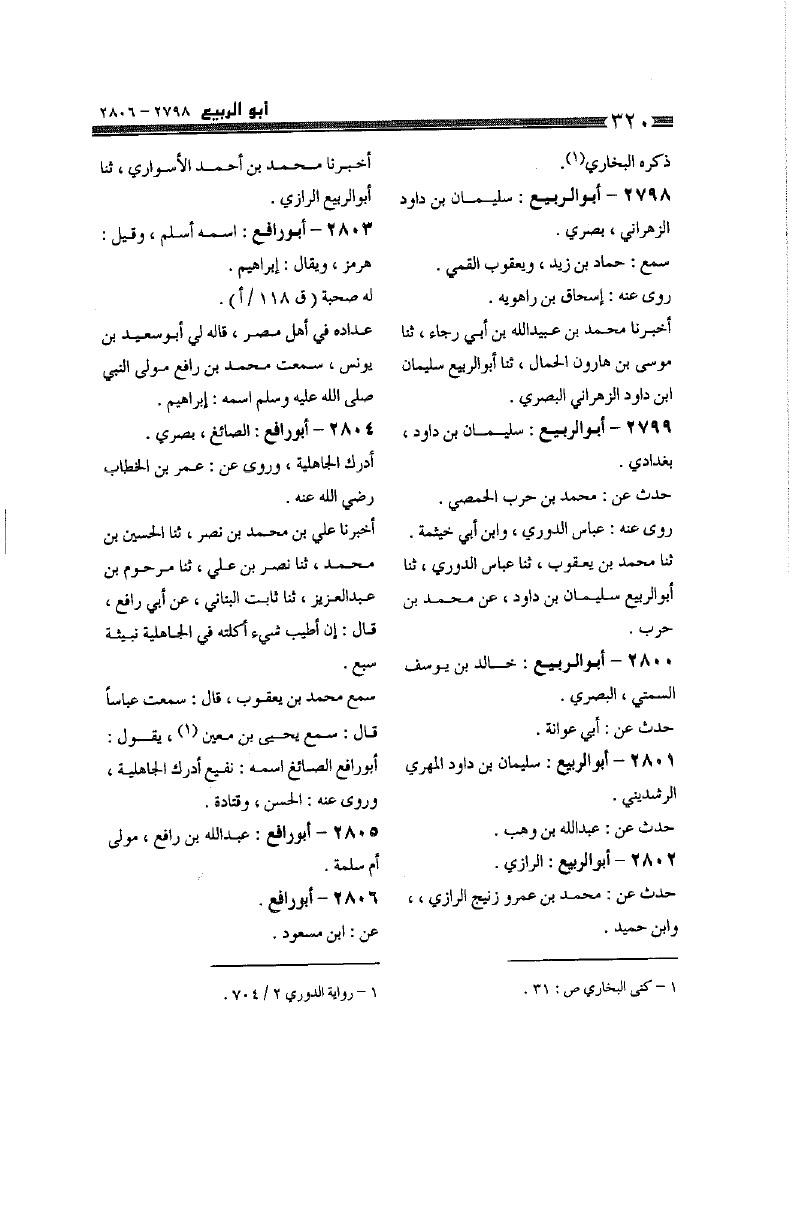 ٣٢٠
أبو الربيع ٢٧٩٨ – ٢٨٠٦
ذكره البخاري(١).
٢٧٩٨ – أبوالربيع : سليمان بن داود
الزهراني ، بصري .
سمع : حماد بن زيد ، ويعقوب القمي .
روى عنه : إسحاق بن راهويه .
أخبرنا محمد بن عبيدالله بن أبي رجاء ، ثنا
موسى بن هارون الحمال ، ثنا أبوالربيع سليمان
ابن داود الزهراني البصري .
٢٧٩٩ – أبوالربيع : سليمان بن داود ،
بغدادي .
حدث عن : محمد بن حرب الحمصي .
روى عنه : عباس الدوري ، وابن أبي خيثمة .
ثنا محمد بن يعقوب ، ثنا عباس الدوري ، ثنا
أبوالربيع سليمان بن داود ، عن محمد بن
حرب .
٢٨٠٠ – أبوالربيع : خالد بن يوسف
السمتي ، البصري .
حدث عن : أبي عوانة .
٢٨٠١ – أبوالربيع : سليمان بن داود المهري
الرشديني .
حدث عن : عبدالله بن وهب .
٢٨٠٢ – أبوالربيع : الرازي .
حدث عن : محمد بن عمرو زنيج الرازي ، ،
وابن حميد .
١ – كنى البخاري ص : ٣١ .
أخبرنا محمد بن أحمد الأسواري ، ثنا
أبوالربيع الرازي .
٢٨٠٣ – أبورافع : اسمه أسلم ، وقيل :
هرمز ، ويقال : إبراهيم .
له صحبة ( ق ١١٨ /أ ) .
عداده في أهل مصر ، قاله لي أبوسعيد بن
يونس ، سمعت محمد بن رافع مولى النبي
صلى الله عليه وسلم اسمه : إبراهيم .
٢٨٠٤ – أبورافع : الصائغ ، بصري .
أدرك الجاهلية ، وروى عن : عمر بن الخطاب
رضي الله عنه .
أخبرنا علي بن محمد بن نصر ، ثنا الحسين بن
محمد ، ثنا نصر بن علي ، ثنا مرحوم بن
عبدالعزيز ، ثنا ثابت البناني ، عن أبي رافع ،
قال : إن أطيب شيء أكلته في الجاهلية نبيثة
سبع .
سمع محمد بن يعقوب ، قال : سمعت عباساً
قال : سمع يحيى بن معين (١) ، يقول :
أبورافع الصائغ اسمه : نفيع أدرك الجاهلية ،
وروى عنه : الحسن ، وقتادة .
٢٨٠٥ – أبورافع : عبدالله بن رافع ، مولى
أم سلمة .
٢٨٠٦ – أبورافع .
عن : ابن مسعود .
١ – رواية الدوري ٢ / ٧٠٤ .